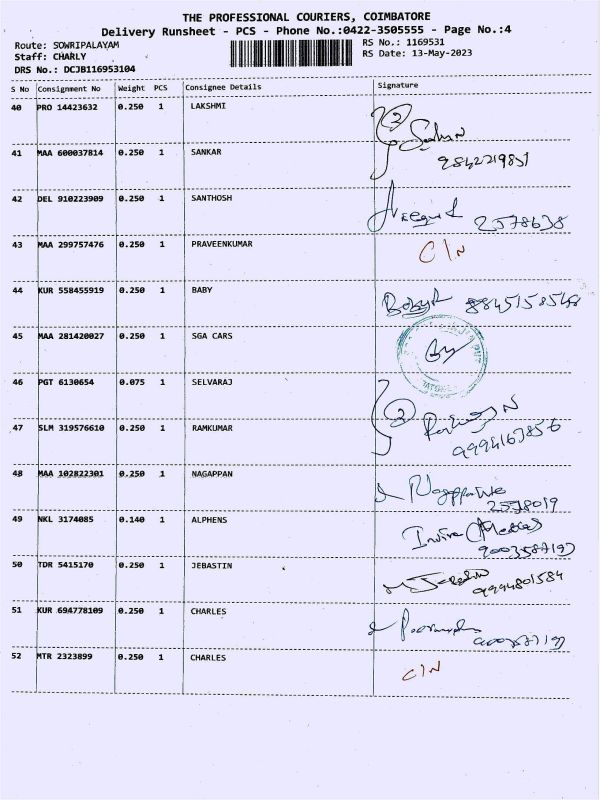 THE PROFESSIONAL COURIERS, COIMBATORE
Delivery Runsheet - PCS - Phone No.:0422-3505555 - Page No.:4
Route: SOWRIPALAYAM
Staff: CHARLY
DRS No.: DCJB116953104
RS No.: 1169531
RS Date: 13-May-2023
S No Consignment No Weight PCS Consignee Details Signature
40 PRO 14423632 0.250 1 LAKSHMI
41 MAA 600037814 0.250 1 SANKAR
42 DEL 910223909 0.250 1 SANTHOSH
2578638
43 MAA 299757476 0.250 1 PRAVEENKUMAR C/N
44 KUR 558455919 0.250 1 BABY
45 MAA 281420027 0.250 1 SGA CARS
46 PGT 6130654 0.075 1 SELVARAJ
47 SLM 319576610 0.250 1 RAMKUMAR
9994163856
48 MAA 102822301 0.250 1 NAGAPPAN
2578019
49 NKL 3174085 0.140 1 ALPHENS
50 TDR 5415170 0.250 1 JEBASTIN
9994801584
51 KUR 694778109 0.250 1 CHARLES
52 MTR 2323899 0.250 1 CHARLES C/N